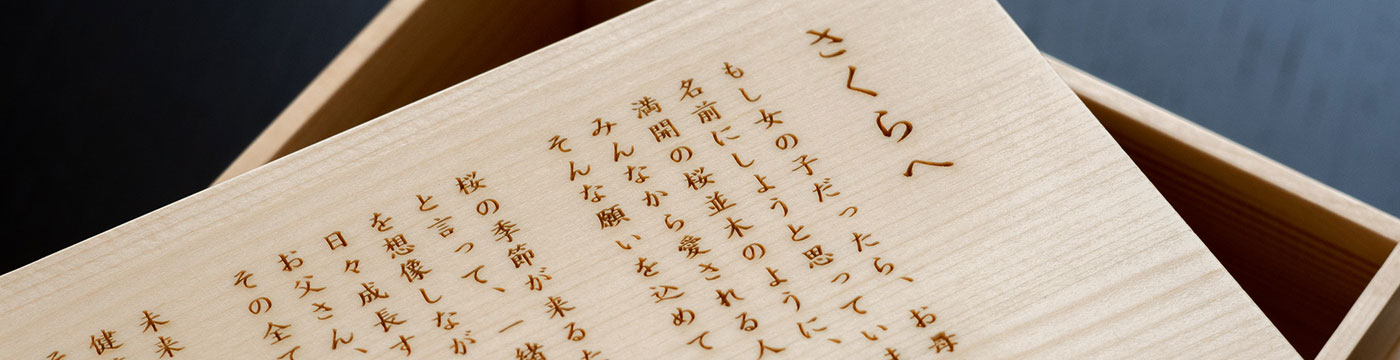 さくらへ
もし女の子だったら、お母
名前にしようと思ってい
満開の桜並木のように、
みんなから愛される人
そんな願いを込めて
桜の季節が来るた
と言って、一緒
を想像しなが
日々成長す
お父さん、
その全て
未来
健
そ